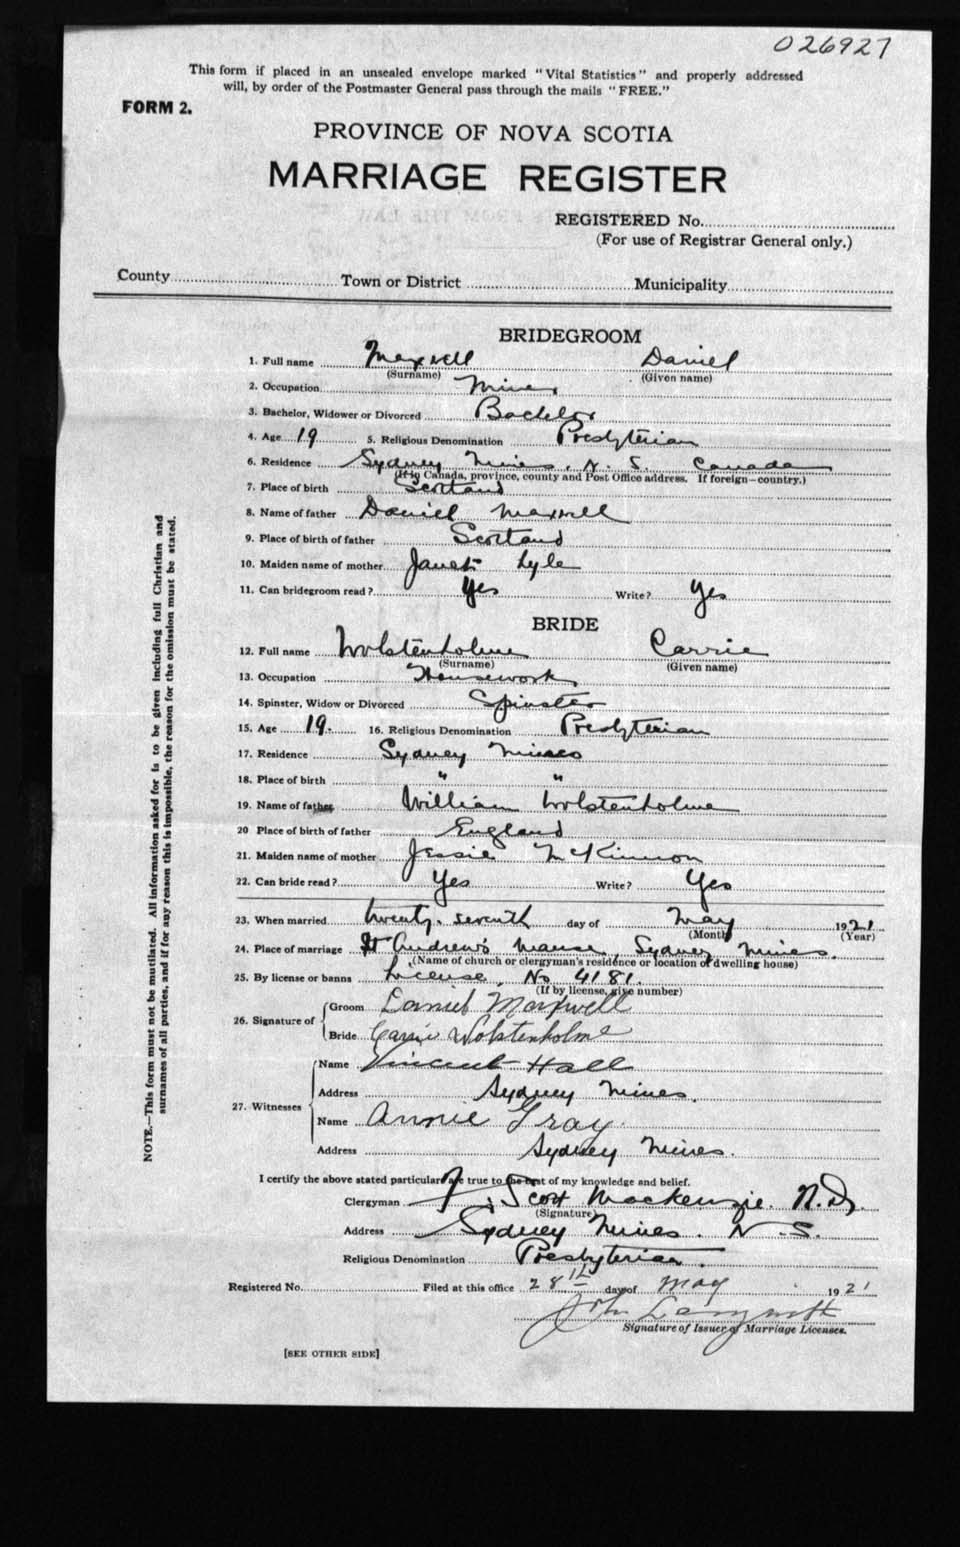 026927
This form if placed in an unsealed envelope marked "Vital Statistics" and properly addressed
will, by order of the Postmaster General pass through the mails "FREE."
FORM 2.
PROVINCE OF NOVA SCOTIA
MARRIAGE REGISTER
REGISTERED No.
(For use of Registrar General only.)
County Town or District Municipality
BRIDEGROOM
1. Full name Maxwell Daniel
(Surname) (Given name)
2. Occupation Miner
3. Bachelor, Widower or Divorced Bachelor
4. Age 19 5. Religious Denomination Presbyterian
6. Residence Sydney Mines, N. S. Canada
(If in Canada, province, county and Post Office address. If foreign—country.)
7. Place of birth Scotland
8. Name of father Daniel Maxwell
9. Place of birth of father Scotland
10. Maiden name of mother Janet Lyle
11. Can bridegroom read? Yes Write? Yes
BRIDE
12. Full name Wolstenholme Carrie
(Surname) (Given name)
13. Occupation Housework
14. Spinster, Widow or Divorced Spinster
15. Age 19. 16. Religious Denomination Presbyterian
17. Residence Sydney Mines
18. Place of birth " "
19. Name of father William Wolstenholme
20 Place of birth of father England
21. Maiden name of mother Jessie McKinnon
22. Can bride read? Yes Write? Yes
23. When married twenty-seventh day of May 1921
(Month) (Year)
24. Place of marriage St Andrew's Manse, Sydney Mines.
(Name of church or clergyman's residence or location of dwelling house)
25. By license or banns License, No 4181.
(If by license, give number)
26. Signature of
Groom Daniel Maxwell
Bride Carrie Wolstenholme
27. Witnesses
Name Vincent Hall
Address Sydney Mines.
Name Annie Gray.
Address Sydney Mines.
I certify the above stated particulars are true to the best of my knowledge and belief.
Clergyman F. Scott Mackenzie.
(Signature)
Address Sydney Mines. N. S.
Religious Denomination Presbyterian.
Registered No. Filed at this office 28th day of May 1921
John
Signature of Issuer of Marriage Licenses.
[SEE OTHER SIDE]
NOTE.—This form must not be mutilated. All information asked for is to be given including full Christian and
surnames of all parties, and if for any reason this is impossible, the reason for the omission must be stated.